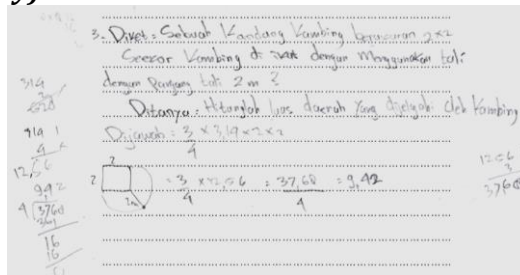 3. Diket : Sebuah Kandang Kambing berukuran 2×2
Seekor Kambing di dengan Menggunakan tali
dengan Panjang tali 2 m ?
Ditanya : Hitunglah luas daerah Yang dijelajahi oleh Kambing
Dijawab : 3/4 × 3,14 × 2 × 2
2
2
2m
= 3/4 × 12,56 = 37,68/4 = 9,42
314
4
12,56
9,42
4
16
16
12,56
3
3768